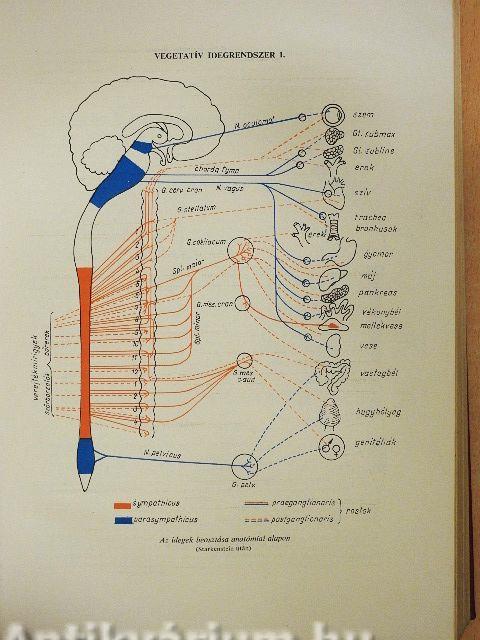 VEGETATÍV IDEGRENDSZER I.
N. oculomot
szem
Gl. submax
Gl. subling
chorda tymp
erek
G. cerv. cran
N. vagus
szív
G. stellatum
trachea
bronkusok
erek
G. coeliacum
gyomor
Spl. major
máj
pankreas
G. mes. cran
vékonybél
mellékvese
Spl. minor
vese
verejtékmirigyek
bőrerek
szőrborzolók
G. mes. caud
vastagbél
húgyhólyag
genitáliák
N. pelvicus
G. pelv
sympathicus
parasympathicus
praeganglionaris
postganglionaris
rostok
Az idegek beosztása anatómiai alapon
(Starkenstein után)
Antikvárium.hu